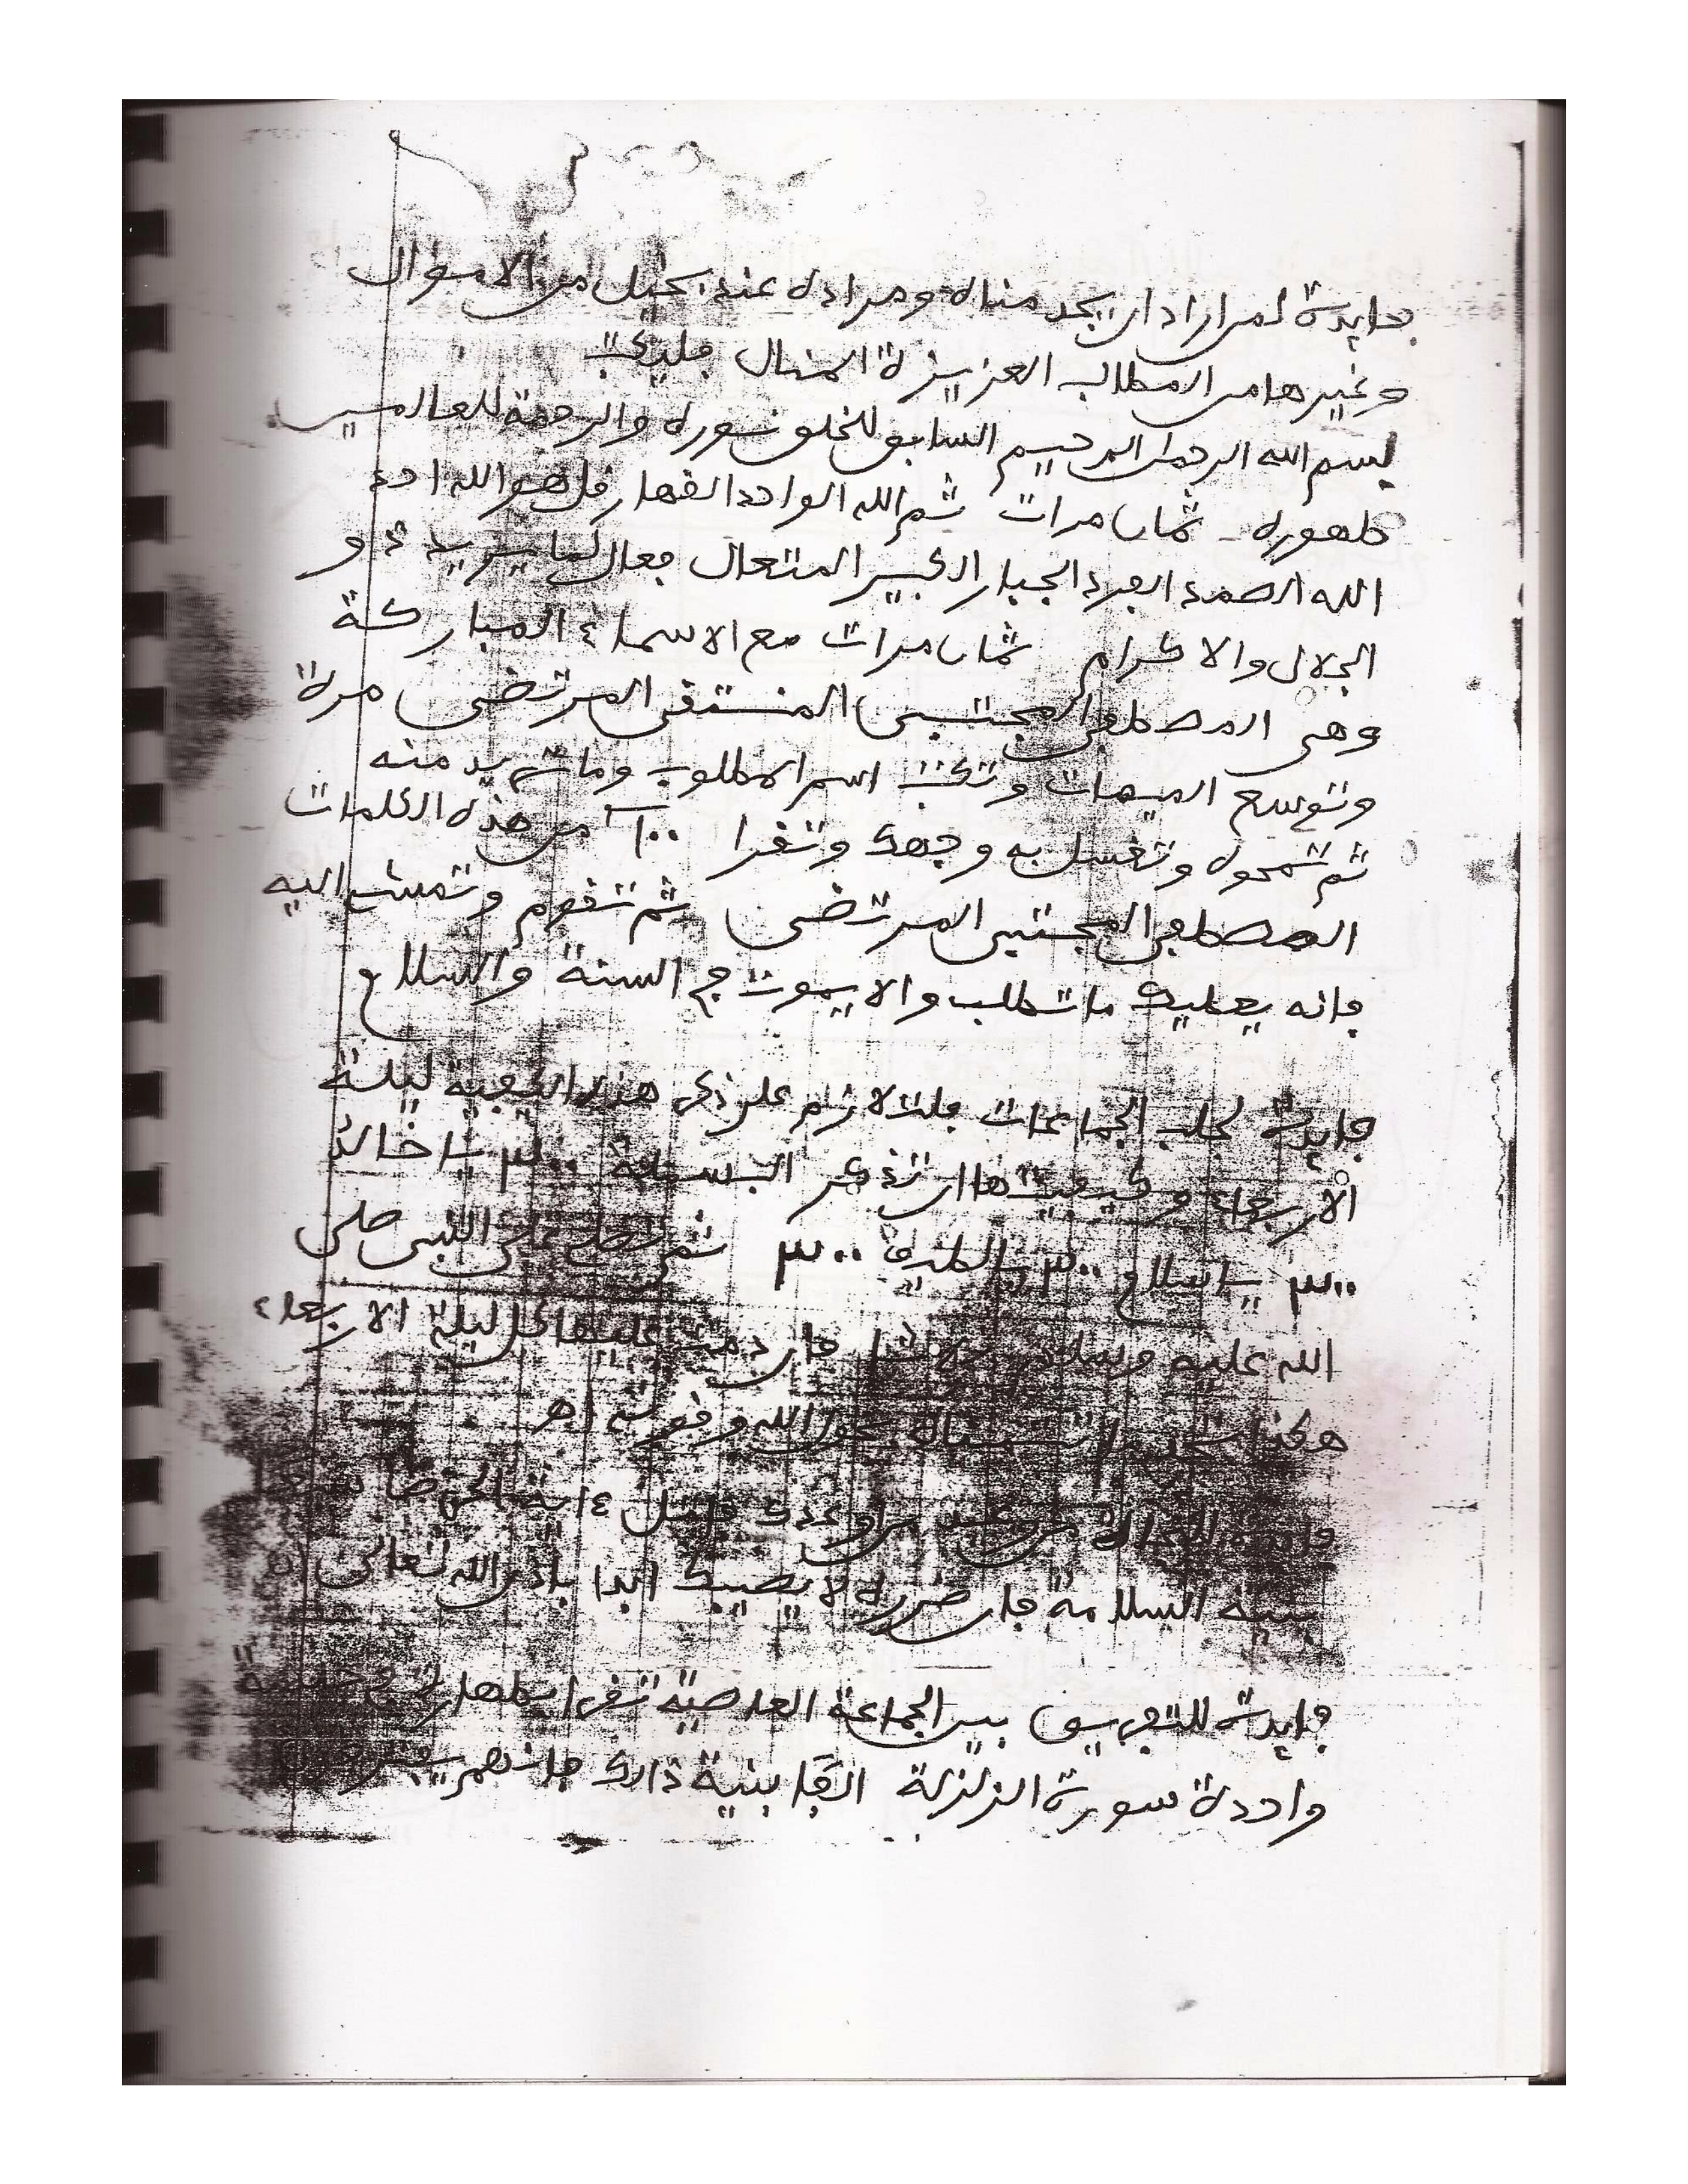 فايدة لمن اراد ان يجد مناه ومراده عند بخيل من الاموال
وغيرها من المطالب العزيزة المنال فليكتب
بسم الله الرحمن الرحيم السابق للخلق نوره والرحمة للعالمين
ظهوره ثمان مرات ثم الله الواحد القهار قل هو الله احد
الله الصمد الفرد الجبار الكبير المتعال فعال لما يريد ذو
الجلال والاكرام ثمان مرات مع الاسماء المباركة
وهي المصطفى المجتبى المنتقى المرتضى مرة
وتوسع الميمات وتكتب اسم المطلوب وما تريد منه
ثم تمحوه وتغسل به وجهك وتقرا من هذه الكلمات
المصطفى المجتبى المرتضى ثم تقوم وتمشي اليه
فانه يعطيك ما تطلب والا يموت في السنة والسلام
فايدة لجلب الجماعات فلتلازم على ذكر هذه الكيفية ليلة
الاربعاء وكيفيتها ان تذكر البسملة ٣٠٠ يا خالق
٣٠٠ يا سلام ٣٠٠ يا لطيف ٣٠٠ ثم تصلي على النبي صلى
الله عليه وسلم فان دمت عليها كل ليلة الاربعاء
هكذا بحول الله وقوته اهـ
عدوك ءاية
بنية السلامة فان ضرره لا يصيبك ابدا باذن الله تعالى
فايدة للتفريق بين الجماعة العاصية تقرا في جلسة
واحدة سورة الزلزلة الفا بنية ذلك فانهم